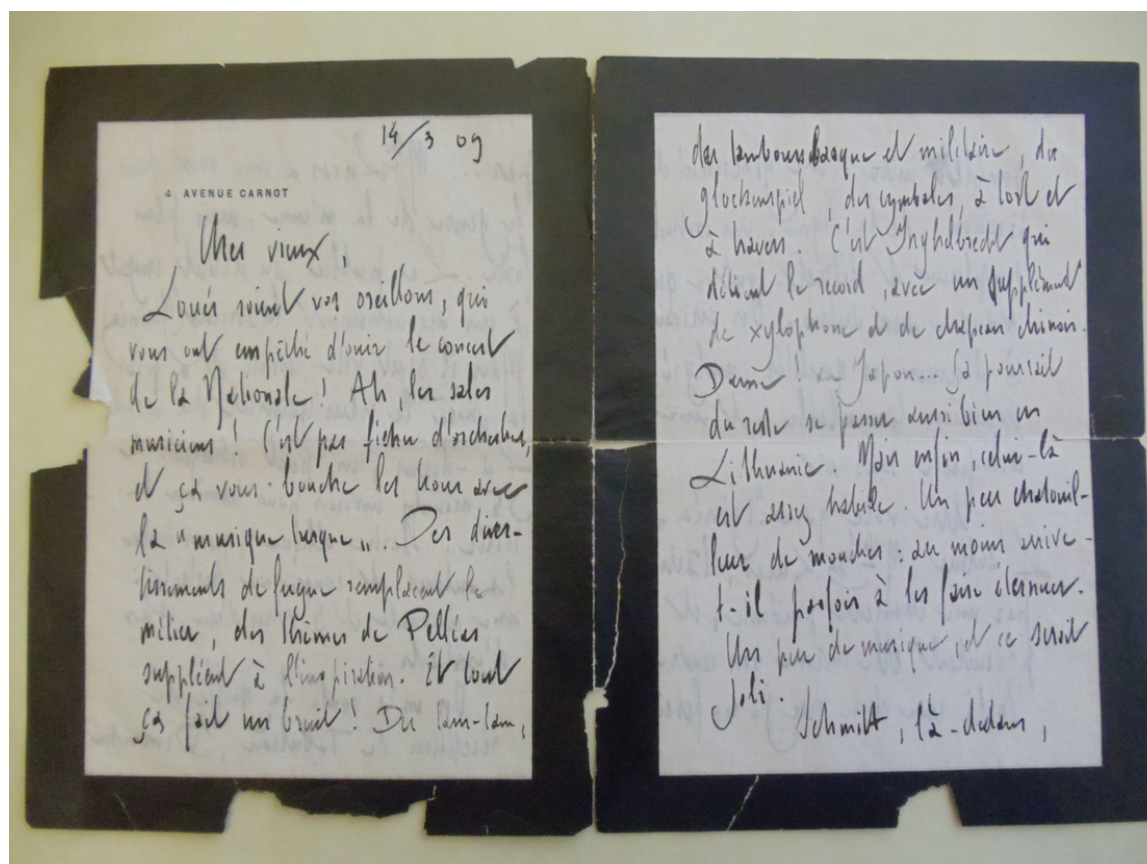 14/3 09
4 AVENUE CARNOT
Cher vieux,
Loués soient vos oreillons, qui
vous ont empêché d'ouïr le concert
de la Nationale ! Ah, les sales
musiciens ! C'est pas fichu d'orchestrer,
et ça vous bouche les trous avec
la "musique turque". Des diver-
tissements de fugue remplacent le
métier, des thèmes de Pelléas
suppléent à l'inspiration. Et tout
ça fait un bruit ! Du tam-tam,
des tambours basque et militaire, du
glockenspiel, des cymbales, à tort et
à travers. C'est Inghelbrecht qui
détient le record, avec un supplément
de xylophone et de chapeau chinois.
Dame ! au Japon.... Ça pourrait
du reste se passer aussi bien en
Lithuanie. Mais enfin, celui-là
est assez habile. Un peu chatouil-
leur de mouches : au moins arrive-
t-il parfois à les faire éternuer.
Un peu de musique, et ce serait
joli.
Schmitt, là-dedans,